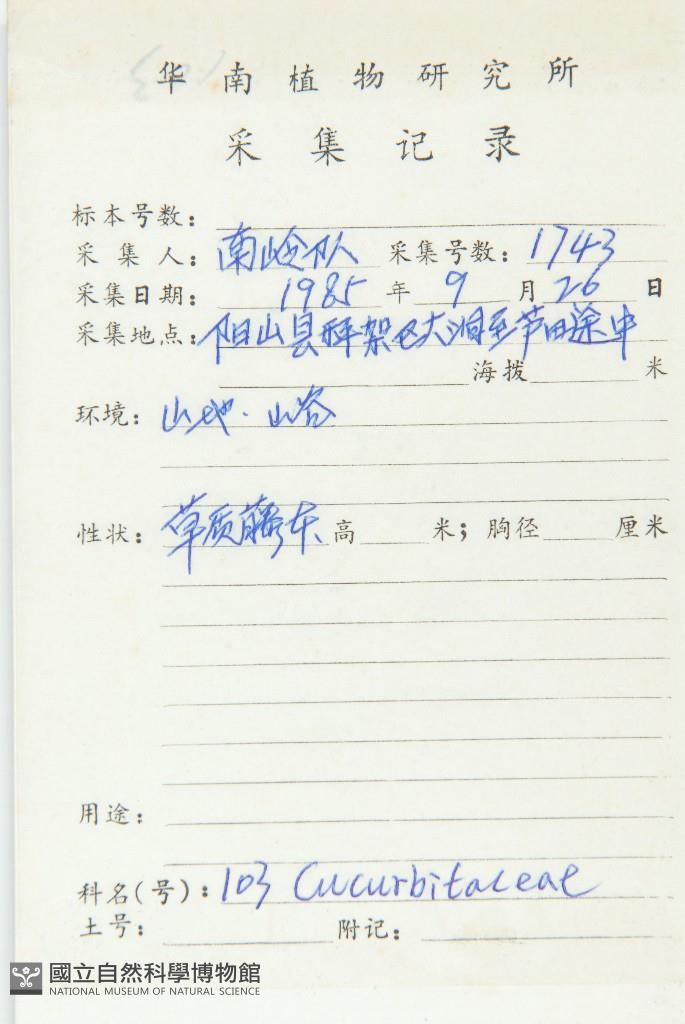 华南植物研究所
采集记录
标本号数:
采集人: 南岭队 采集号数: 1743
采集日期: 1985 年 9 月 26 日
采集地点: 阳山县秤架区大洞至芦田途中
海拨 米
环境: 山地.山谷
性状: 草质藤本 高 米; 胸径 厘米
用途:
科名(号): 103 Cucurbitaceae
土号: 附记:
國立自然科學博物館
NATIONAL MUSEUM OF NATURAL SCIENCE